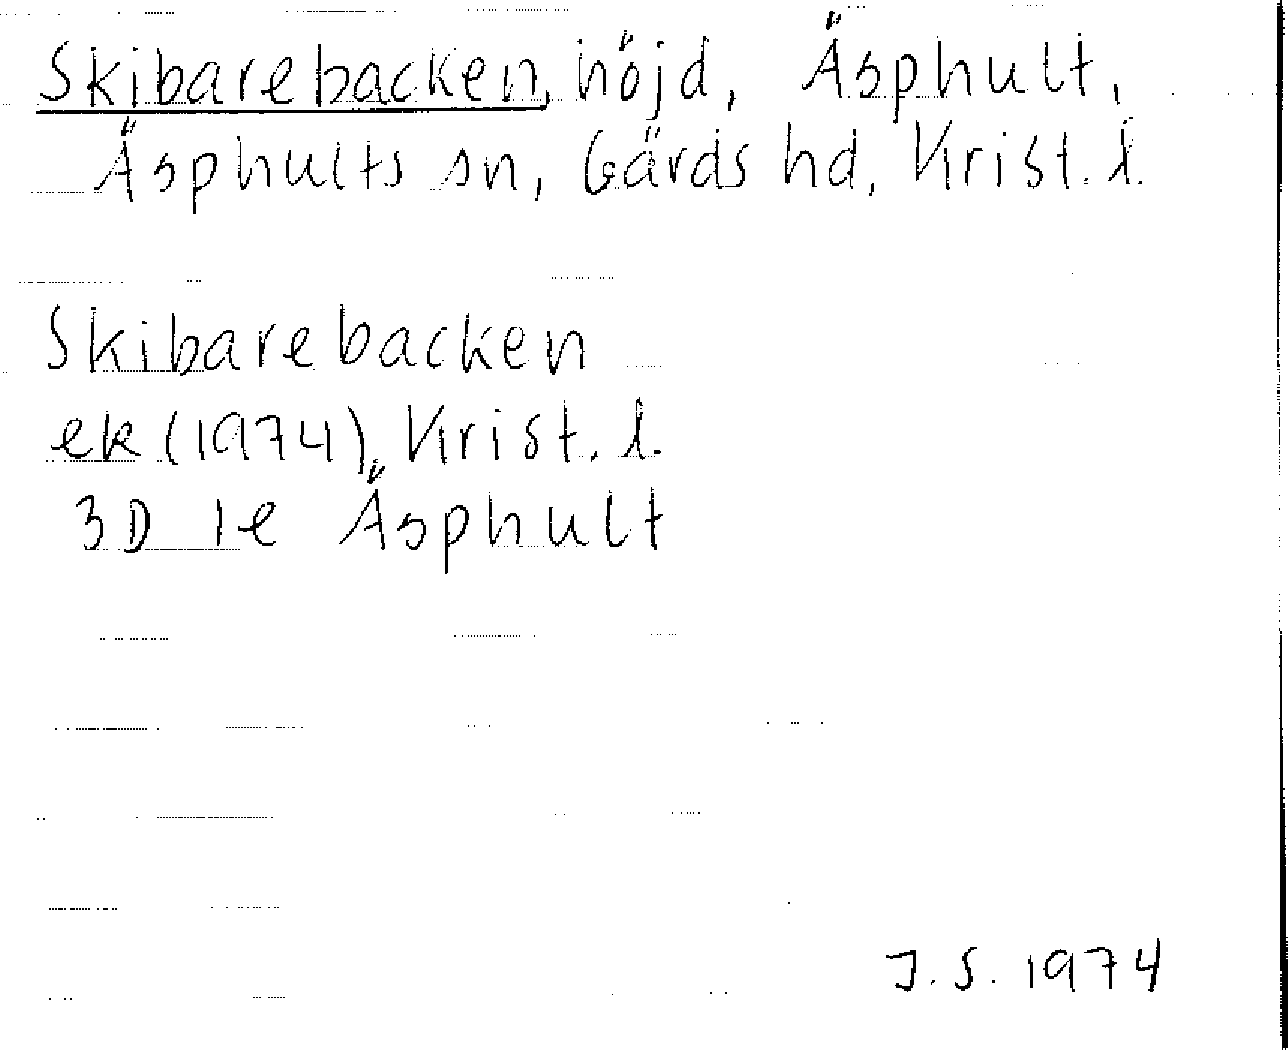 Skibarebacken, höjd, Äsphult,
Äsphults sn, Gärds hd, Krist. l.
Skibarebacken
ek (1974), Krist. l.
3D 1e Äsphult
J.S. 1974